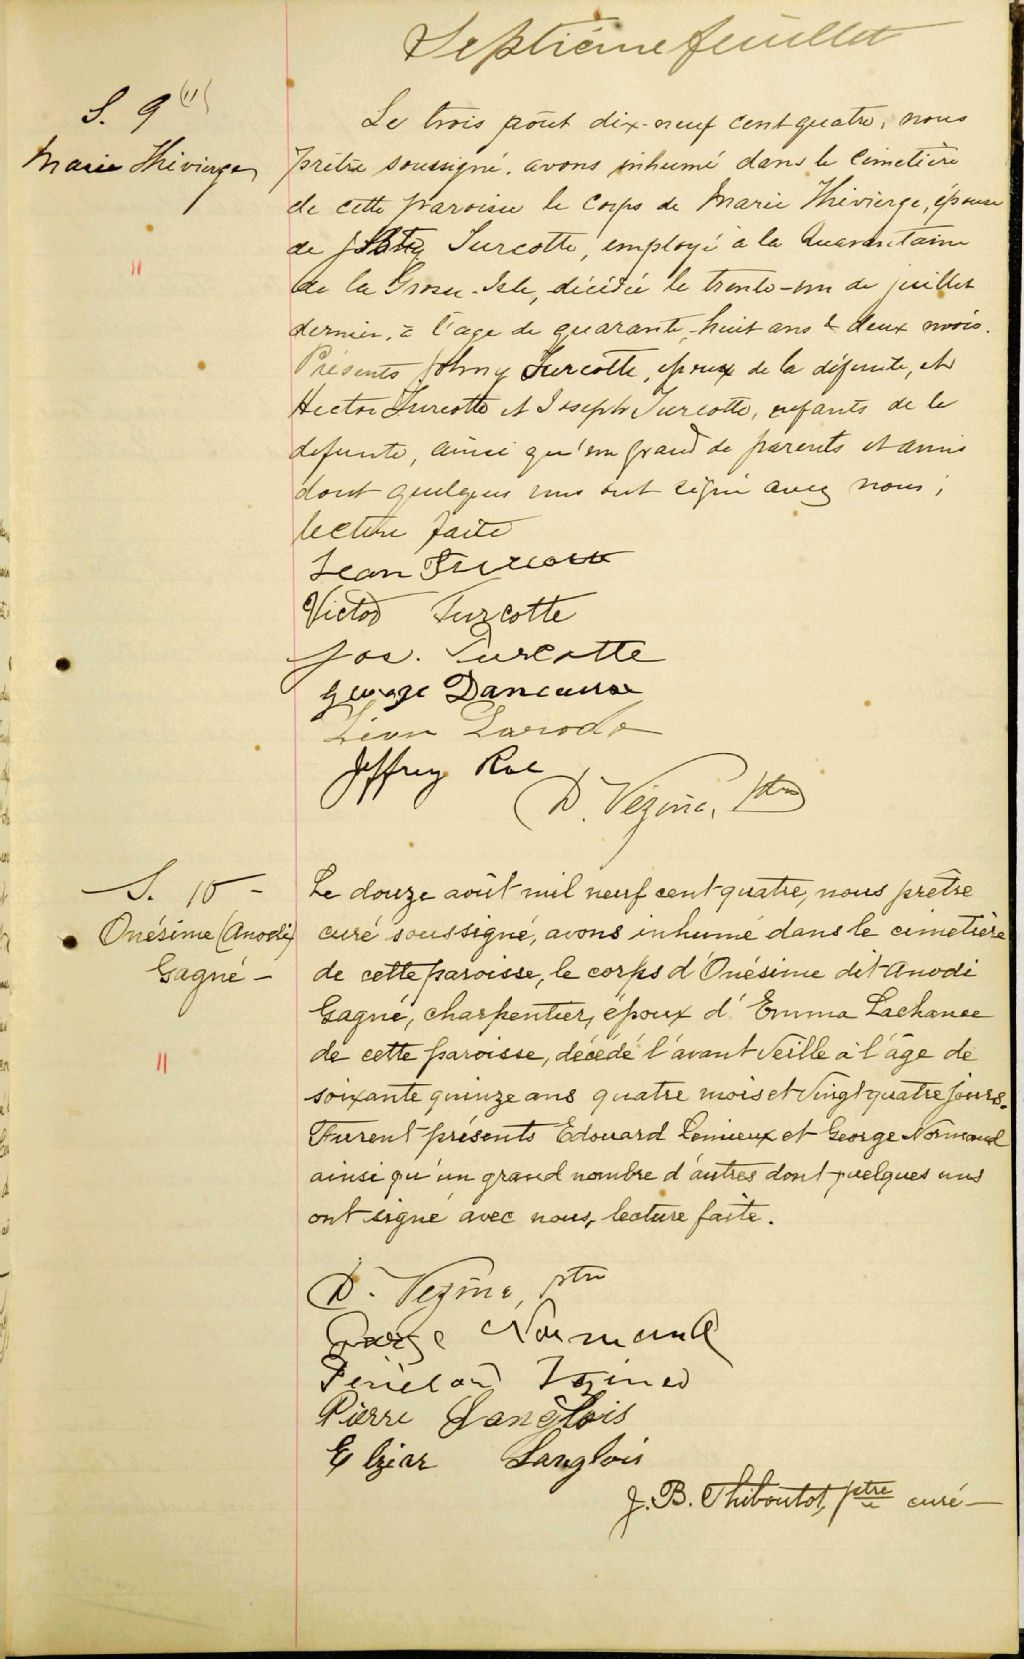 Septième feuillet
S. 9
Marie Thivierge
Le trois août dix-neuf cent quatre, nous
prêtre soussigné, avons inhumé dans le cimetière
de cette paroisse le corps de Marie Thivierge, épouse
de Turcotte, employé à la Quarantaine
de la Grosse-Isle, décédée le trente-un de juillet
dernier, à l'age de quarante-huit ans & deux mois.
Présents Johny Turcotte, époux de la défunte, et
Hector Turcotte et Joseph Turcotte, enfants de la
defunte, ainsi qu'un grand de parents et amis
dont quelques uns ont signé avec nous;
lecture faite
Jean Turcotte
Victor Turcotte
Jos. Turcotte
George Dancause
Léon
Jeffrey Roe
D. Vézina, Ptre
S. 10 -
Onésime (Anodi)
Gagné -
Le douze août mil neuf cent quatre, nous prêtre
curé soussigné, avons inhumé dans le cimetière
de cette paroisse, le corps d'Onésime dit Anodi
Gagné, charpentier, époux d'Emma Lachance
de cette paroisse, décédé l'avant veille à l'âge de
soixante quinze ans quatre mois et vingt quatre jours.
Furent présents Edouard Lemieux et George Normand
ainsi qu'un grand nombre d'autres dont quelques uns
ont signé avec nous, lecture faite.
D. Vezina, ptre
George Normand
Pierre Langlois
Elzéar Langlois
J. B. Thiboutot, ptre curé -